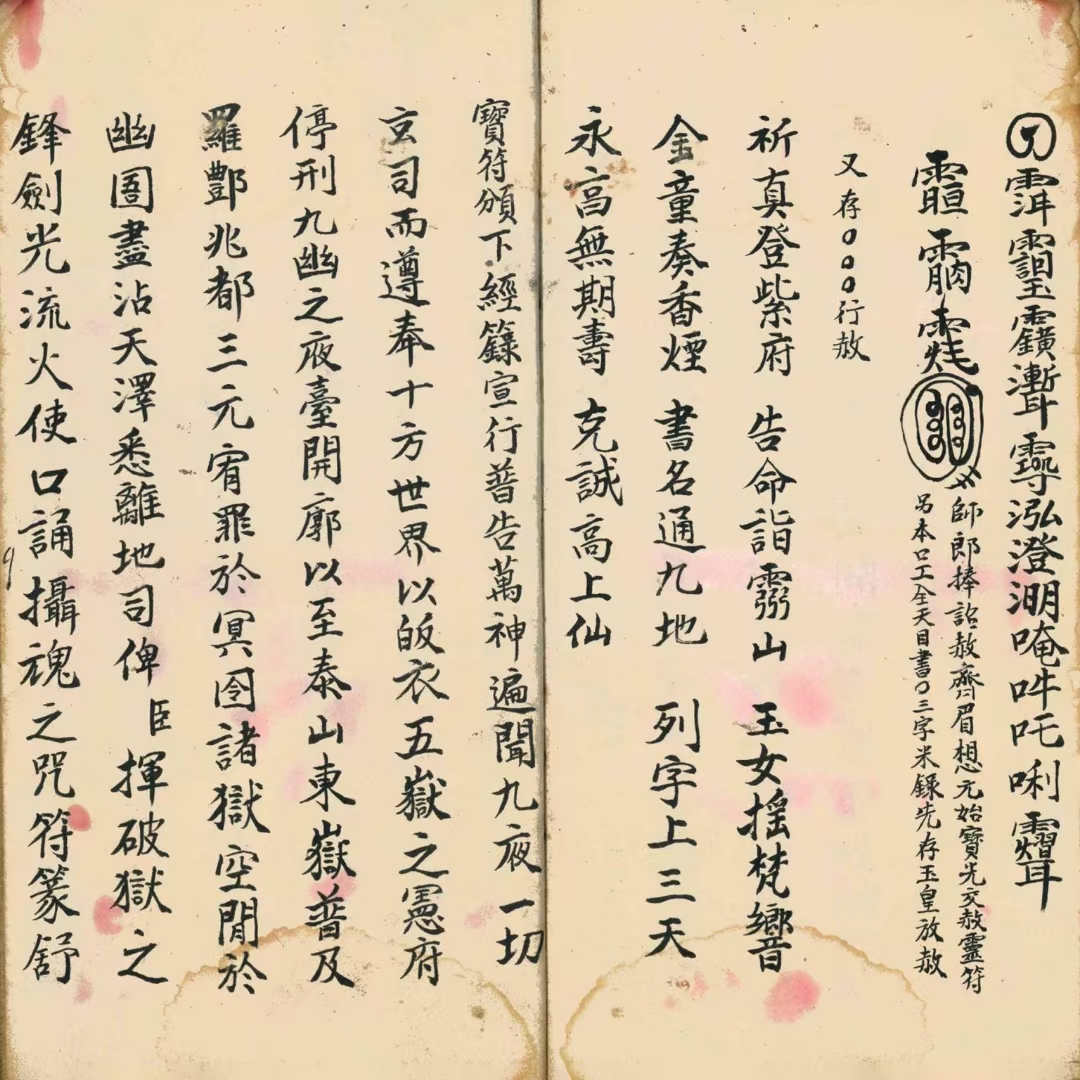 泓澄淜唵吽吒唎
師郎捧詔赦齊眉想元始寶光交赦靈符
另本口工全天目書〇三字米籙先存玉皇放赦
又存〇〇〇行赦
祈真登紫府 告命詣靈山 玉女搖梵響
金童奏香煙 書名通九地 列字上三天
永高無期壽 克誠高上仙
寶符頒下經籙宣行普告萬神遍聞九夜一切
玄司而遵奉十方世界以皈衣五嶽之憲府
停刑九幽之夜臺開廓以至泰山東嶽普及
羅酆兆都三元宥罪於冥囹諸獄空閒於
幽圄盡沾天澤悉離地司俾臣揮破獄之
鋒劍光流火使口誦攝魂之咒符篆舒